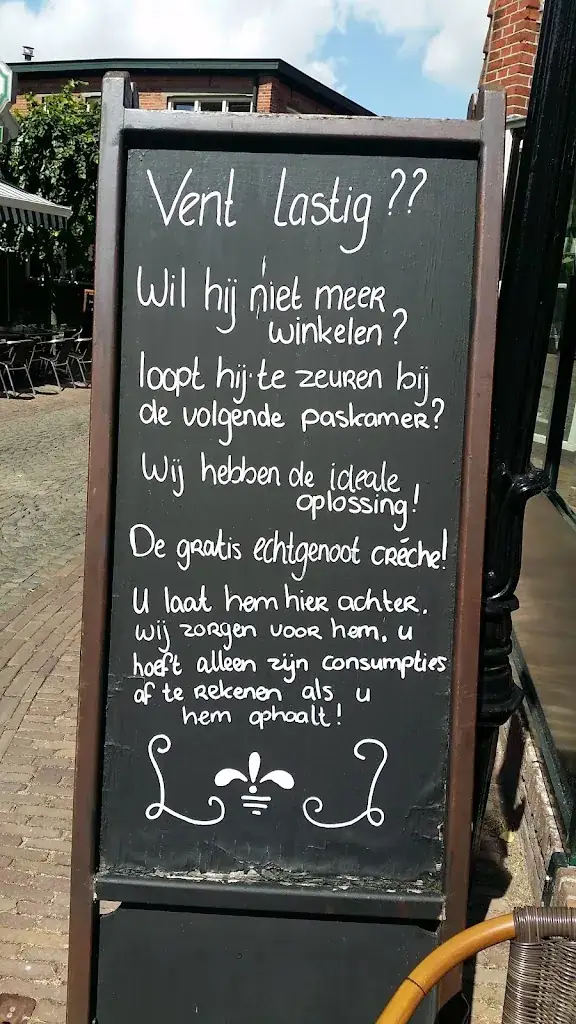 Vent lastig??
Wil hij niet meer
winkelen?
loopt hij te zeuren bij
de volgende paskamer?
Wij hebben de ideale
oplossing!
De gratis echtgenoot créche!
U laat hem hier achter.
wij zorgen voor hem, u
hoeft alleen zijn consumpties
af te rekenen als u
hem ophaalt!